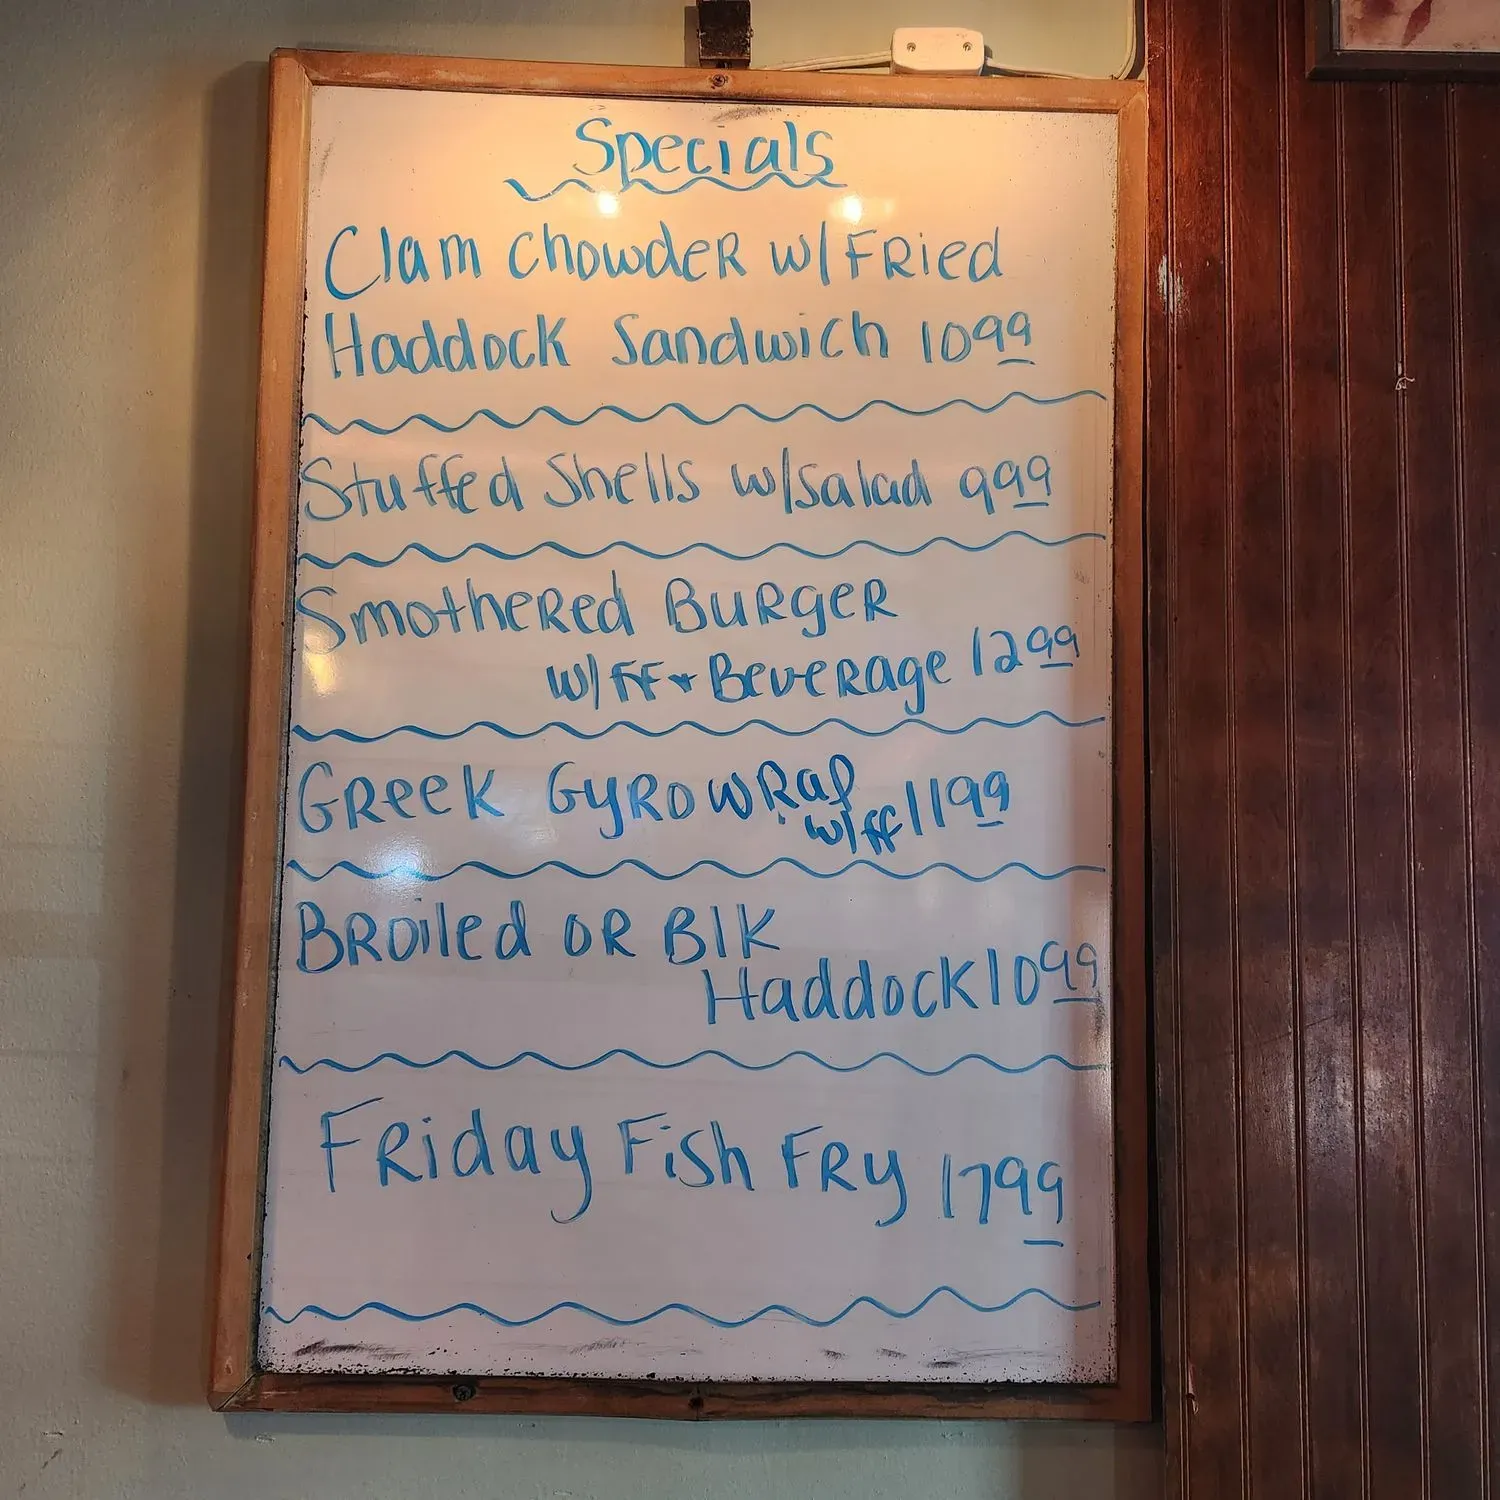 Specials
Clam Chowder w/ Fried
Haddock Sandwich 10 99
Stuffed Shells w/ Salad 9 99
Smothered Burger
w/ FF + Beverage 12 99
Greek Gyro Wrap
w/ ff 11 99
Broiled or Blk
Haddock 10 99
Friday Fish Fry 17 99